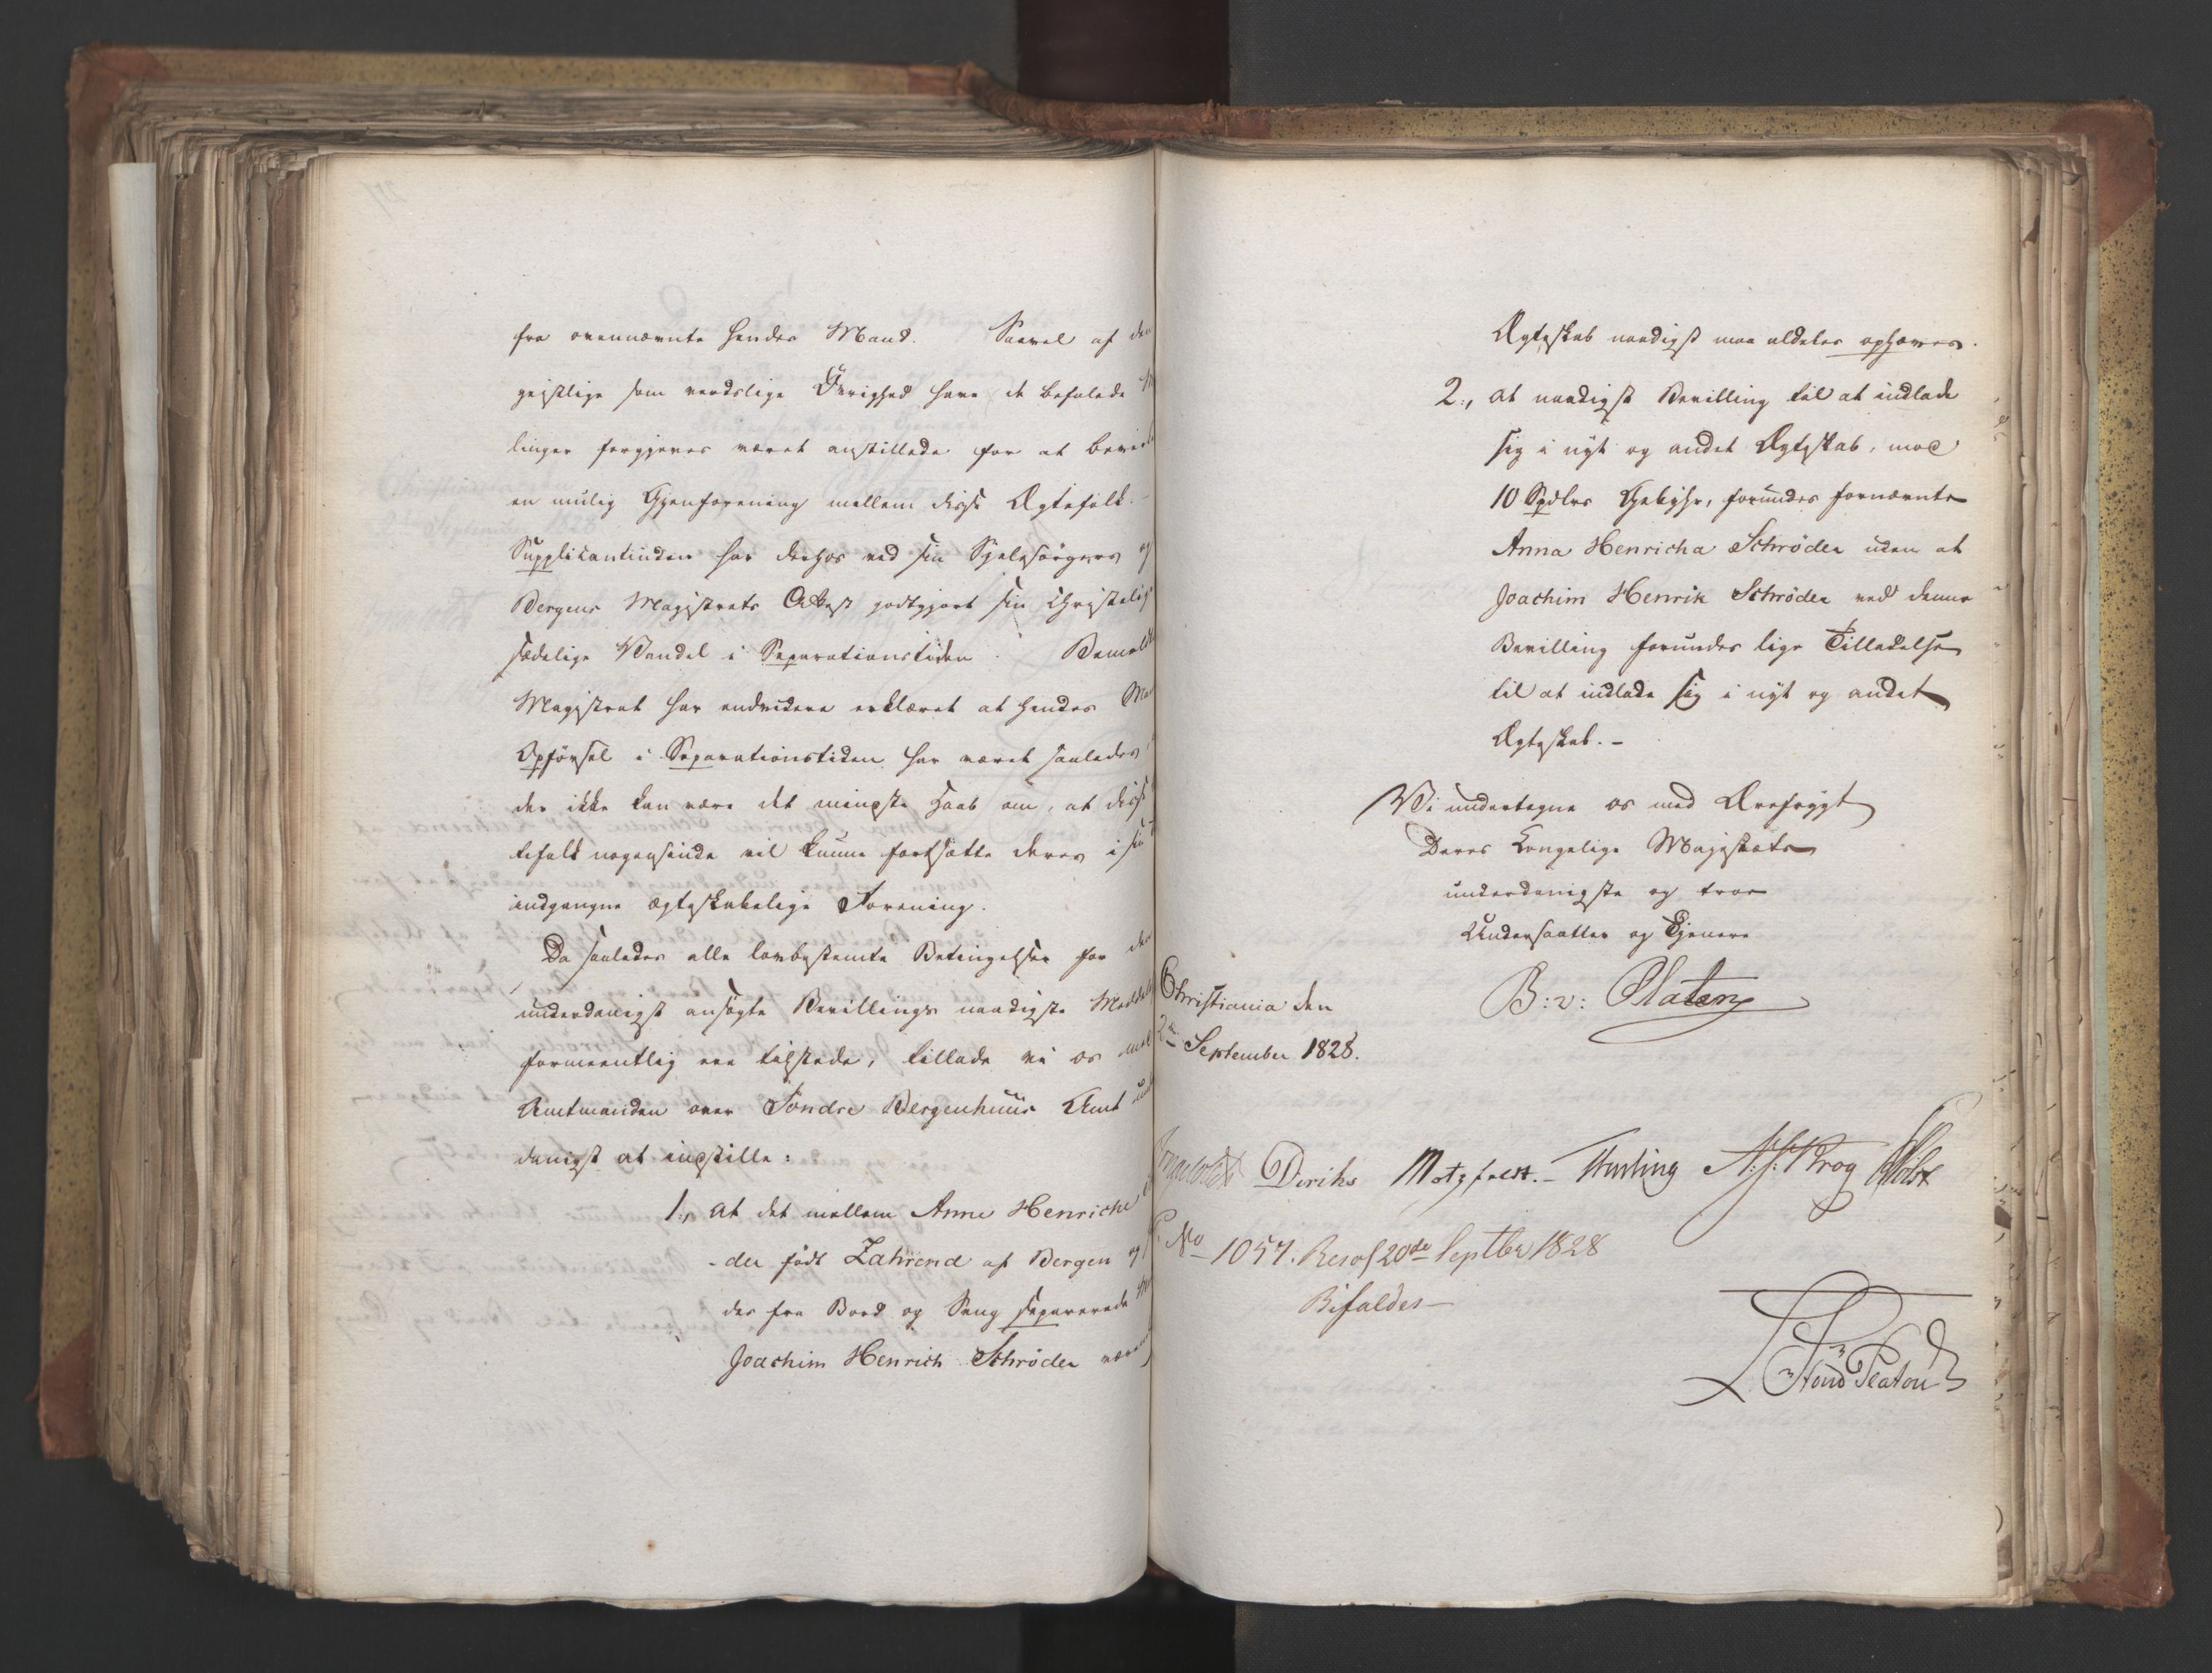 fra ovennævnte hendes Mand. Saavel af den
geistlige som verdslige Øvrighed have de befalede M
linger forgjeves været anstillede for at bevir
en mulig Gjenforening mellem disse Ægtefolk.
Supplicantinden har derhos ved sin Sjelesørgers og
Bergens Magistrats Attest godtgjort sin Christelig
sædelige Vandel i Separationstiden. Bemeldte
Magistrat har endvidere erklæret at hendes Ma
Opførsel i Separationstiden har været saaledes,
der ikke kan være det mindste Haab om, at disse
tefolk nogensinde vil kunne fortsætte deres i sin
indgangne ægteskabelige Forening.
Da saaledes alle lovbestemte Betingelser for den
underdanigst ansøgte Bevillings naadigste Meddel
formeentlig ere tilstede, tillade vi os med
Amtmanden over Søndre Bergenhuus Amt un
danigst at indstille:
1, at det mellem Anne Henriche
der født Zahrend af Bergen og
des fra Bord og Seng separerede
Joachim Henrich Schrøder være
Ægteskab naadigst maa aldeles ophæves.
2, at naadigst Bevilling til at indlade
sig i nyt og andet Ægteskab, mod
10 Spdlrs Gebyhr, forundes fornævnte
Anna Henricha Schrøder uden at
Joachim Henrik Schrøder ved denne
Bevilling forundes lige Tilladelse
til at indlade sig i nyt og andet
Ægteskab. -
Vi undertegne os med Ærefrygt
Deres Kongelige Majestæts
underdanigste og troe
Undersaatter og Tjenere
B: v: Platen
Christiania den
2 September 1828.
Diriks Motzfeldt. - Fasting A: S: Krog Holst
No 1057. Resol 20de Septbr 1828
Bifaldes -